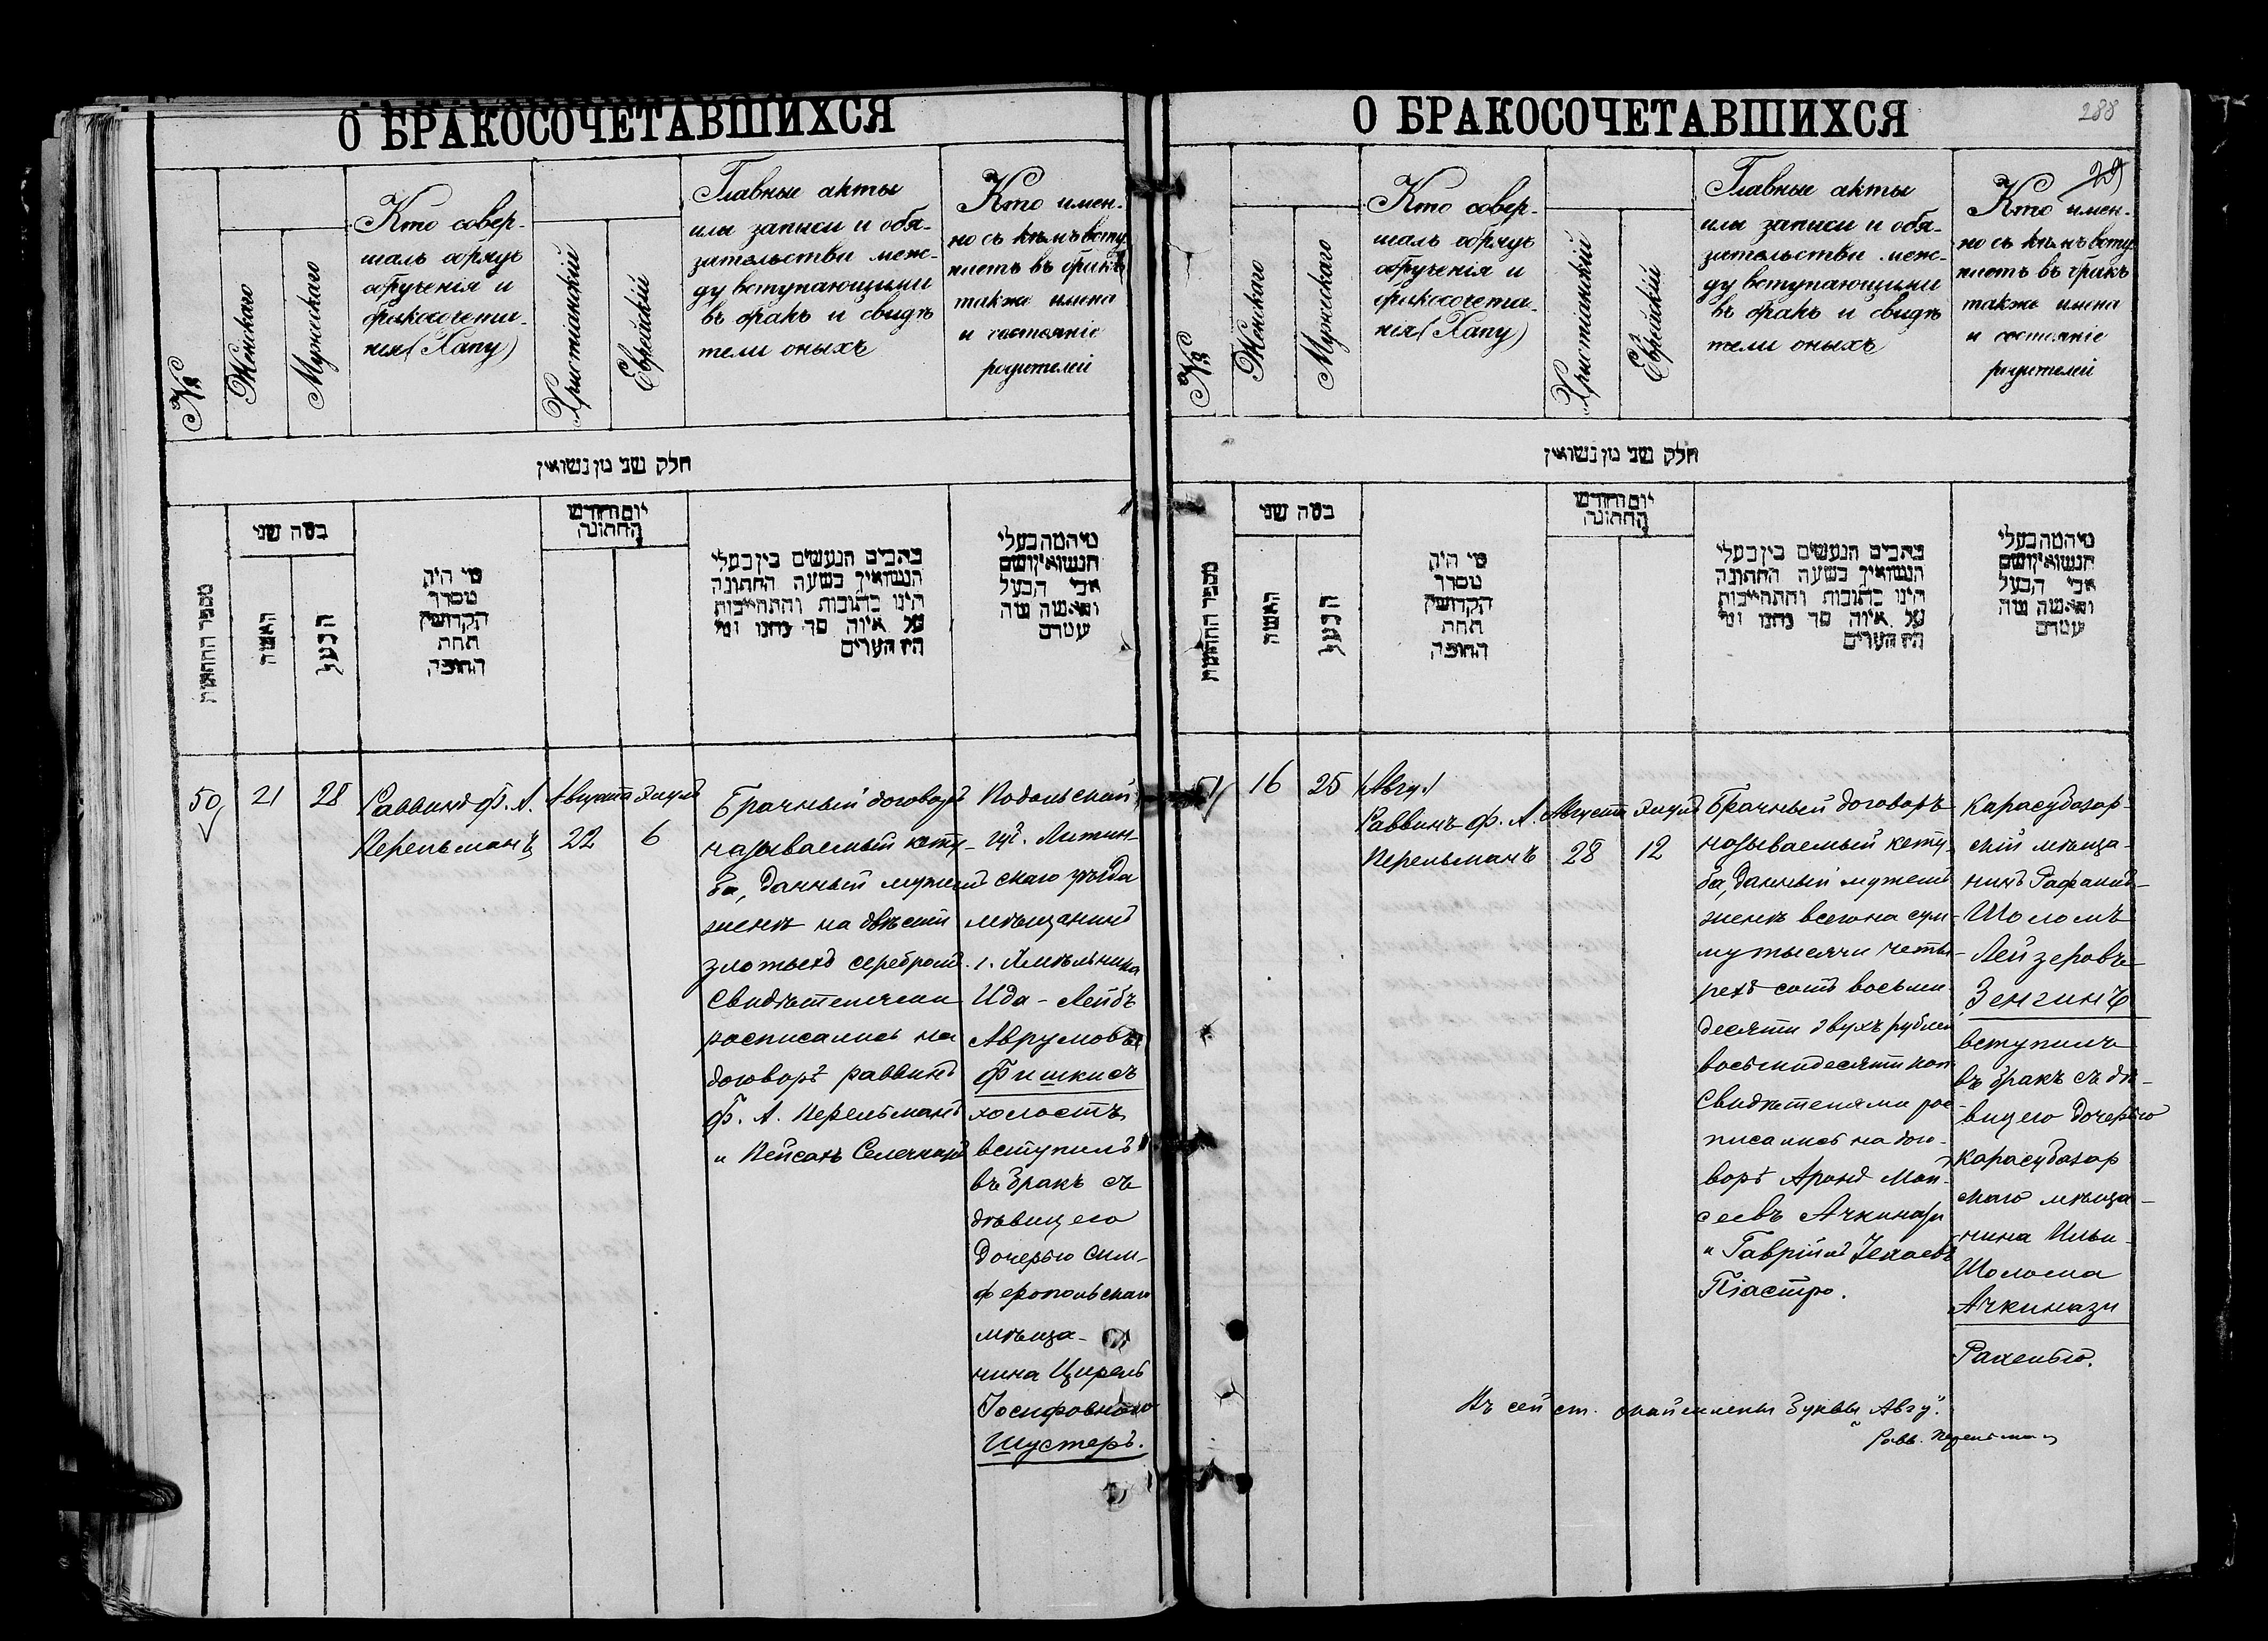 О БРАКОСОЧЕТАВШИХСЯ
№
Женскаго
Мужескаго
Кто совер-
шалъ обрядъ
обрученія и
бракосочета-
нія (Хапу)
Христіанскій
Еврейскій
Главные акты
или записи и обя-
зательства меж-
ду вступающими
въ бракъ и свидѣ
тели оныхъ
Кто имен-
но съ кѣмъ всту
паетъ въ бракъ
также имена
и состояніе
родителей
חלק שני מן נשואין
מספר החתונות
כמה שני
האשה
הבעל
מי היה
מסדר
הקדושין
תחת
החופה
יום וחודש
החתונה
כתבים הנעשים בין בעלי
הנשואין בשעה החתונה
היינו כתובות והתחייבות
על איזה סך נתנו ומי
הם העדים
מי המה בעלי
הנשואין ושם
אבי הבעל
והאשה מה
מעמדם
50
21
28
Раввинъ Ф. А.
Перельманъ
Августа
22
Элула
6
Брачный договоръ
называемый кету-
ба, данный мужемъ
женѣ на двѣсти
злотыхъ серебромъ.
Свидѣтелями
расписались на
договорѣ раввинъ
Ф. А. Перельманъ
и Пейсахъ
Подольской
губ. Литин-
скаго уѣзда
мѣщанинъ
г. Хмѣльника
Ида-Лейбъ
Аврумовъ
Фишкисъ
холостъ
вступилъ
въ бракъ съ
дѣвицею
дочерью сим-
феропольскаго
мѣща-
нина Цирель
Іосифовною
Шустеръ.
О БРАКОСОЧЕТАВШИХСЯ
288
29
№
Женскаго
Мужескаго
Кто совер-
шалъ обрядъ
обрученія и
бракосочета-
нія (Хапу)
Христіанскій
Еврейскій
Главные акты
или записи и обя-
зательства меж-
ду вступающими
въ бракъ и свидѣ
тели оныхъ
Кто имен-
но съ кѣмъ всту
паетъ въ бракъ
также имена
и состояніе
родителей
חלק שני מן נשואין
מספר החתונות
כמה שני
האשה
הבעל
מי היה
מסדר
הקדושין
תחת
החופה
יום וחודש
החתונה
כתבים הנעשים בין בעלי
הנשואין בשעה החתונה
היינו כתובות והתחייבות
על איזה סך נתנו ומי
הם העדים
מי המה בעלי
הנשואין ושם
אבי הבעל
והאשה מה
מעמדם
51
16
25
(Авгу.)
Раввинъ Ф. А.
Перельманъ
Августа
28
Элула
12
Брачный договоръ
называемый кету-
ба, данный мужемъ
женѣ всего на сум-
му тысячи четы-
рехъ сотъ восьми-
десяти двухъ рублей
восьмидесяти коп.
Свидѣтелями рос-
писались на дого-
ворѣ Аронъ Мои-
сеевъ Ачкинази
и Гавріилъ
Піастро.
Карасубазар-
скій мѣща-
нинъ Рафаилъ-
Шоломъ
Лейзеровъ
Зенгинъ
вступилъ
въ бракъ съ дѣ-
вицею дочерью
Карасубазар
скаго мѣща-
нина Ильи-
Шолома
Ачкинази
Рахелью.
Въ сей ст. обойменены буквы „Авгу“.
Равв. Перельманъ